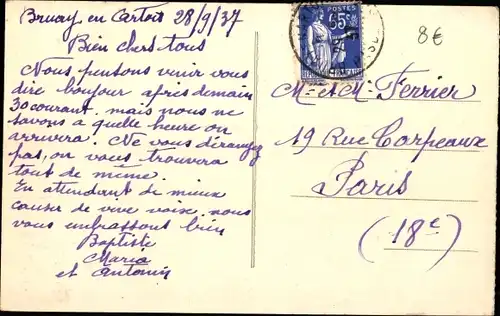 Bruay en Cartois 28/9/37
Bien chers tous
Nous pensons venir vous
dire bonjour après demain
30 courant. mais nous ne
savons à quelle heure on
arrivera. Ne vous dérangez
pas, on vous trouvera
tout de même.
En attendant de mieux
causer de vive voix. nous
vous embrassons bien
Baptiste
Maria
et Antonin
POSTES
65c
8€
M. et M. Ferrier
19 Rue Carpeaux
Paris
(18e)